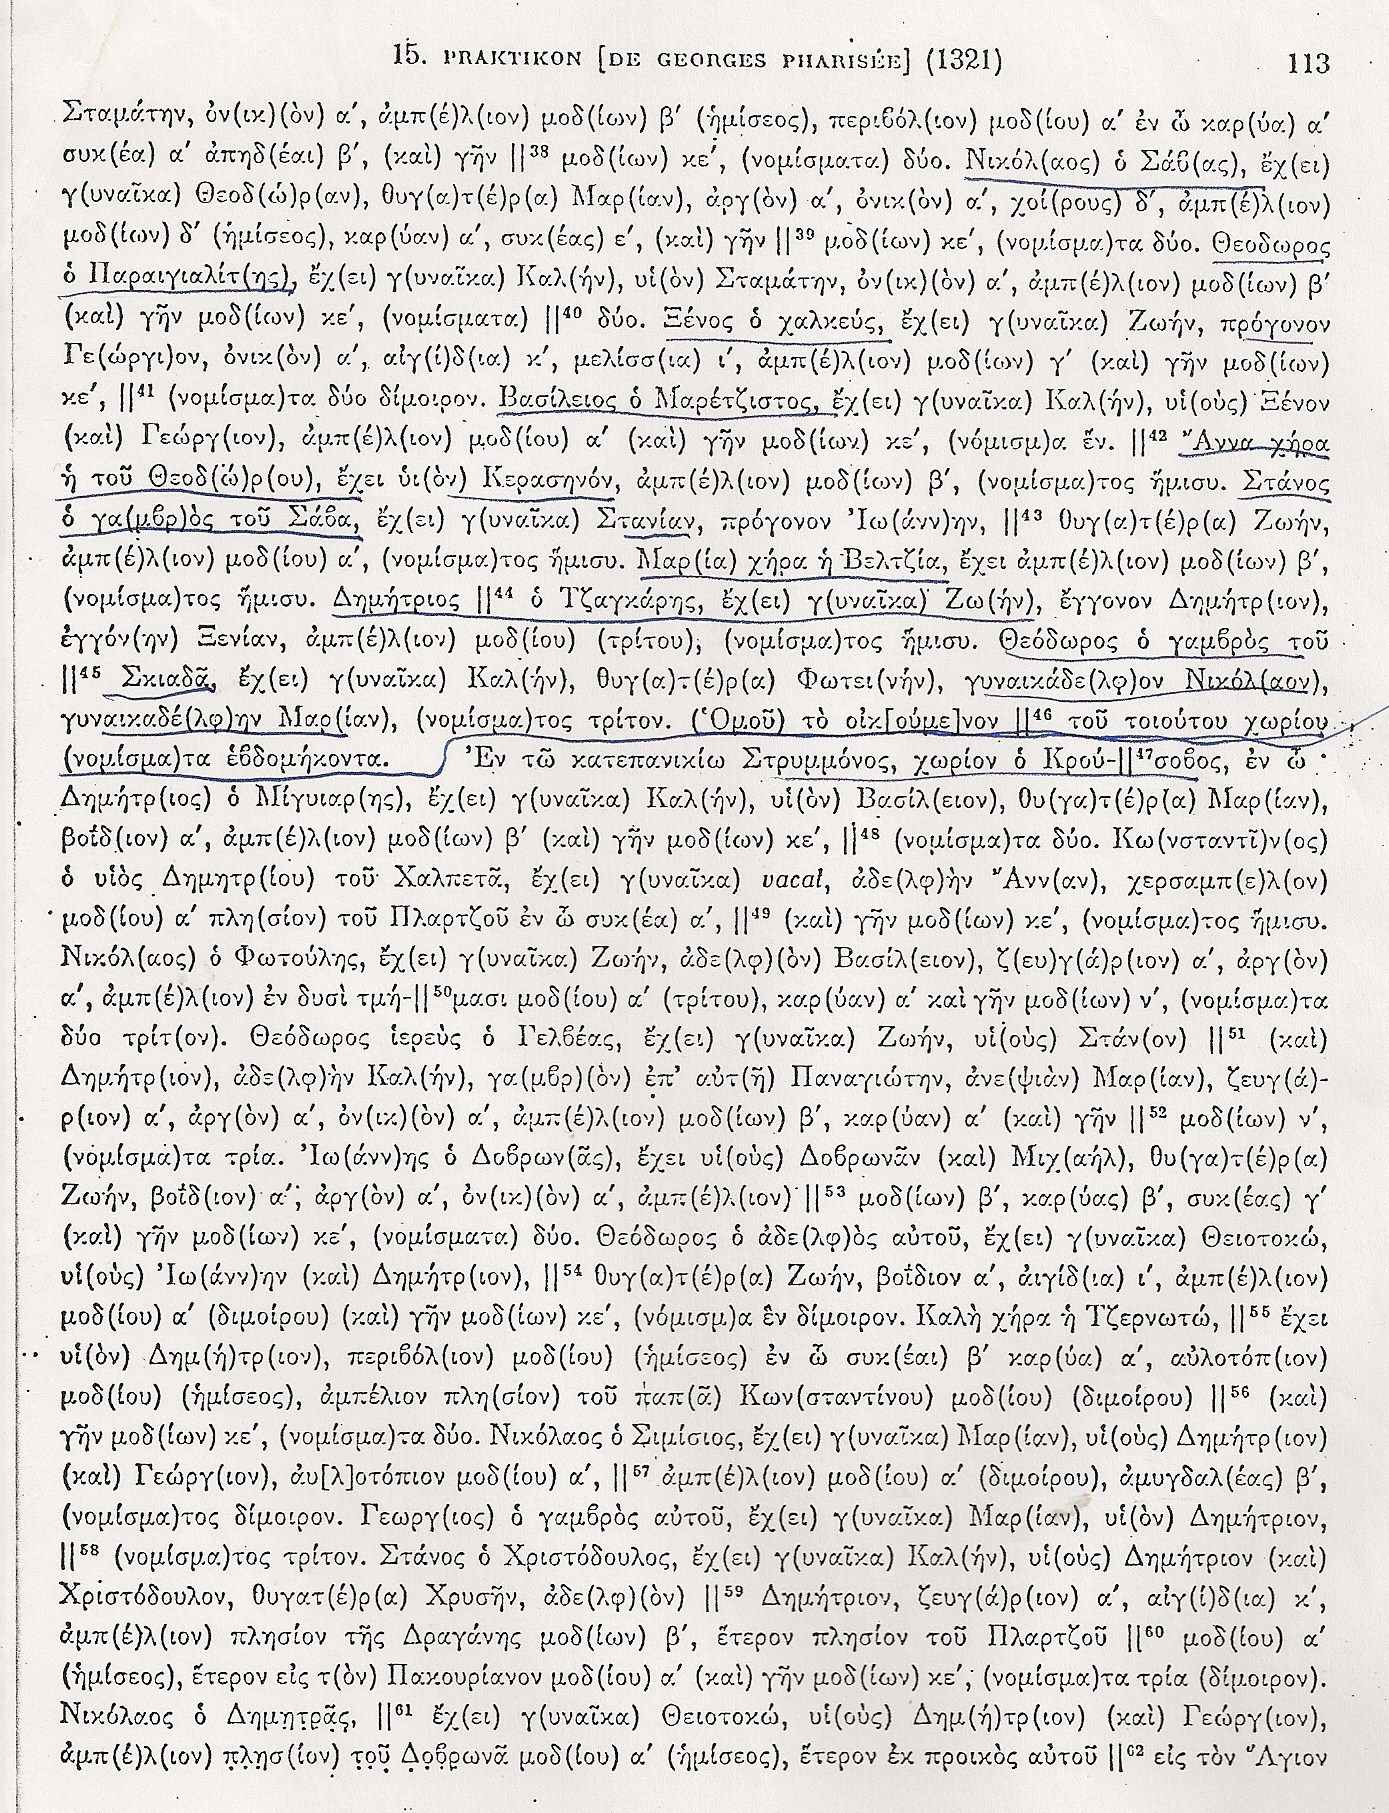 15. PRAKTIKON [DE GEORGES PHARISÉE] (1321) 113
Σταμάτην, ὀν(ικ)(ὸν) α′, ἀμπ(έ)λ(ιον) μοδ(ίων) β′ (ἡμίσεος), περιβόλ(ιον) μοδ(ίου) α′ ἐν ᾧ καρ(ύα) α′
συκ(έα) α′ ἀπηδ(έαι) β′, (καὶ) γῆν ||³⁸ μοδ(ίων) κε′, (νομίσματα) δύο. Νικόλ(αος) ὁ Σάβ(ας), ἔχ(ει)
γ(υναῖκα) Θεοδ(ώ)ρ(αν), θυγ(α)τ(έ)ρ(α) Μαρ(ίαν), ἀργ(ὸν) α′, ὀνικ(ὸν) α′, χοί(ρους) δ′, ἀμπ(έ)λ(ιον)
μοδ(ίων) δ′ (ἡμίσεος), καρ(ύαν) α′, συκ(έας) ε′, (καὶ) γῆν ||³⁹ μοδ(ίων) κε′, (νομίσμα)τα δύο. Θεοδωρος
ὁ Παραιγιαλίτ(ης), ἔχ(ει) γ(υναῖκα) Καλ(ήν), υἱ(ὸν) Σταμάτην, ὀν(ικ)(ὸν) α′, ἀμπ(έ)λ(ιον) μοδ(ίων) β′
(καὶ) γῆν μοδ(ίων) κε′, (νομίσματα) ||⁴⁰ δύο. Ξένος ὁ χαλκεύς, ἔχ(ει) γ(υναῖκα) Ζωήν, πρόγονον
Γε(ώργι)ον, ὀνικ(ὸν) α′, αἰγ(ί)δ(ια) κ′, μελίσσ(ια) ι′, ἀμπ(έ)λ(ιον) μοδ(ίων) γ′ (καὶ) γῆν μοδ(ίων)
κε′, ||⁴¹ (νομίσμα)τα δύο δίμοιρον. Βασίλειος ὁ Μαρέτζιστος, ἔχ(ει) γ(υναῖκα) Καλ(ήν), υἱ(οὺς) Ξένον
(καὶ) Γεώργ(ιον), ἀμπ(έ)λ(ιον) μοδ(ίου) α′ (καὶ) γῆν μοδ(ίων) κε′, (νόμισμ)α ἕν. ||⁴² Ἄννα χήρα
ἡ τοῦ Θεοδ(ώ)ρ(ου), ἔχει ὑι(ὸν) Κερασηνόν, ἀμπ(έ)λ(ιον) μοδ(ίων) β′, (νομίσμα)τος ἥμισυ. Στάνος
ὁ γα(μβρ)ὸς τοῦ Σάβα, ἔχ(ει) γ(υναῖκα) Στανίαν, πρόγονον Ἰω(άνν)ην, ||⁴³ θυγ(α)τ(έ)ρ(α) Ζωήν,
ἀμπ(έ)λ(ιον) μοδ(ίου) α′, (νομίσμα)τος ἥμισυ. Μαρ(ία) χήρα ἡ Βελτζία, ἔχει ἀμπ(έ)λ(ιον) μοδ(ίων) β′,
(νομίσμα)τος ἥμισυ. Δημήτριος ||⁴⁴ ὁ Τζαγκάρης, ἔχ(ει) γ(υναῖκα) Ζω(ήν), ἔγγονον Δημήτρ(ιον),
ἐγγόν(ην) Ξενίαν, ἀμπ(έ)λ(ιον) μοδ(ίου) (τρίτου), (νομίσμα)τος ἥμισυ. Θεόδωρος ὁ γαμβρὸς τοῦ
||⁴⁵ Σκιαδᾶ, ἔχ(ει) γ(υναῖκα) Καλ(ήν), θυγ(α)τ(έ)ρ(α) Φωτει(νήν), γυναικάδε(λφ)ον Νικόλ(αον),
γυναικαδέ(λφ)ην Μαρ(ίαν), (νομίσμα)τος τρίτον. (Ὁμοῦ) τὸ οἰκ[ούμε]νον ||⁴⁶ τοῦ τοιούτου χωρίου
(νομίσμα)τα ἑβδομήκοντα. Ἐν τῶ κατεπανικίω Στρυμμόνος, χωρίον ὁ Κρού-||⁴⁷σοβος, ἐν ᾧ
Δημήτρ(ιος) ὁ Μίγυιαρ(ης), ἔχ(ει) γ(υναῖκα) Καλ(ήν), υἱ(ὸν) Βασίλ(ειον), θυ(γα)τ(έ)ρ(α) Μαρ(ίαν),
βοΐδ(ιον) α′, ἀμπ(έ)λ(ιον) μοδ(ίων) β′ (καὶ) γῆν μοδ(ίων) κε′, ||⁴⁸ (νομίσμα)τα δύο. Κω(νσταντῖ)ν(ος)
ὁ υἱὸς Δημητρ(ίου) τοῦ Χαλπετᾶ, ἔχ(ει) γ(υναῖκα) vacat, ἀδε(λφ)ὴν Ἄνν(αν), χερσαμπ(ε)λ(ον)
μοδ(ίου) α′ πλη(σίον) τοῦ Πλαρτζοῦ ἐν ᾧ συκ(έα) α′, ||⁴⁹ (καὶ) γῆν μοδ(ίων) κε′, (νομίσμα)τος ἥμισυ.
Νικόλ(αος) ὁ Φωτούλης, ἔχ(ει) γ(υναῖκα) Ζωήν, ἀδε(λφ)(ὸν) Βασίλ(ειον), ζ(ευ)γ(ά)ρ(ιον) α′, ἀργ(ὸν)
α′, ἀμπ(έ)λ(ιον) ἐν δυσὶ τμή-||⁵⁰μασι μοδ(ίου) α′ (τρίτου), καρ(ύαν) α′ καὶ γῆν μοδ(ίων) ν′, (νομίσμα)τα
δύο τρίτ(ον). Θεόδωρος ἱερεὺς ὁ Γελβέας, ἔχ(ει) γ(υναῖκα) Ζωήν, υἱ(οὺς) Στάν(ον) ||⁵¹ (καὶ)
Δημήτρ(ιον), ἀδε(λφ)ὴν Καλ(ήν), γα(μβρ)(ὸν) ἐπ’ αὐτ(ῆ) Παναγιώτην, ἀνε(ψιὰν) Μαρ(ίαν), ζευγ(ά)-
ρ(ιον) α′, ἀργ(ὸν) α′, ὀν(ικ)(ὸν) α′, ἀμπ(έ)λ(ιον) μοδ(ίων) β′, καρ(ύαν) α′ (καὶ) γῆν ||⁵² μοδ(ίων) ν′,
(νομίσμα)τα τρία. Ἰω(άνν)ης ὁ Δοβρων(ᾶς), ἔχει υἱ(οὺς) Δοβρωνᾶν (καὶ) Μιχ(αήλ), θυ(γα)τ(έ)ρ(α)
Ζωήν, βοΐδ(ιον) α′, ἀργ(ὸν) α′, ὀν(ικ)(ὸν) α′, ἀμπ(έ)λ(ιον) ||⁵³ μοδ(ίων) β′, καρ(ύας) β′, συκ(έας) γ′
(καὶ) γῆν μοδ(ίων) κε′, (νομίσματα) δύο. Θεόδωρος ὁ ἀδε(λφ)ὸς αὐτοῦ, ἔχ(ει) γ(υναῖκα) Θειοτοκώ,
υἱ(οὺς) Ἰω(άνν)ην (καὶ) Δημήτρ(ιον), ||⁵⁴ θυγ(α)τ(έ)ρ(α) Ζωήν, βοΐδιον α′, αἰγίδ(ια) ι′, ἀμπ(έ)λ(ιον)
μοδ(ίου) α′ (διμοίρου) (καὶ) γῆν μοδ(ίων) κε′, (νόμισμ)α ἓν δίμοιρον. Καλὴ χήρα ἡ Τζερνωτώ, ||⁵⁵ ἔχει
υἱ(ὸν) Δημ(ή)τρ(ιον), περιβόλ(ιον) μοδ(ίου) (ἡμίσεος) ἐν ᾧ συκ(έαι) β′ καρ(ύα) α′, αὐλοτόπ(ιον)
μοδ(ίου) (ἡμίσεος), ἀμπέλιον πλη(σίον) τοῦ παπ(ᾶ) Κων(σταντίνου) μοδ(ίου) (διμοίρου) ||⁵⁶ (καὶ)
γῆν μοδ(ίων) κε′, (νομίσμα)τα δύο. Νικόλαος ὁ Σιμίσιος, ἔχ(ει) γ(υναῖκα) Μαρ(ίαν), υἱ(οὺς) Δημήτρ(ιον)
(καὶ) Γεώργ(ιον), ἀυ[λ]οτόπιον μοδ(ίου) α′, ||⁵⁷ ἀμπ(έ)λ(ιον) μοδ(ίου) α′ (διμοίρου), ἀμυγδαλ(έας) β′,
(νομίσμα)τος δίμοιρον. Γεωργ(ιος) ὁ γαμβρὸς αὐτοῦ, ἔχ(ει) γ(υναῖκα) Μαρ(ίαν), υἱ(ὸν) Δημήτριον,
||⁵⁸ (νομίσμα)τος τρίτον. Στάνος ὁ Χριστόδουλος, ἔχ(ει) γ(υναῖκα) Καλ(ήν), υἱ(οὺς) Δημήτριον (καὶ)
Χριστόδουλον, θυγατ(έ)ρ(α) Χρυσῆν, ἀδε(λφ)(ὸν) ||⁵⁹ Δημήτριον, ζευγ(ά)ρ(ιον) α′, αἰγ(ί)δ(ια) κ′,
ἀμπ(έ)λ(ιον) πλησίον τῆς Δραγάνης μοδ(ίων) β′, ἕτερον πλησίον τοῦ Πλαρτζοῦ ||⁶⁰ μοδ(ίου) α′
(ἡμίσεος), ἕτερον εἰς τ(ὸν) Πακουρίανον μοδ(ίου) α′ (καὶ) γῆν μοδ(ίων) κε′, (νομίσμα)τα τρία (δίμοιρον).
Νικόλαος ὁ Δημητρᾶς, ||⁶¹ ἔχ(ει) γ(υναῖκα) Θειοτοκώ, υἱ(οὺς) Δημ(ή)τρ(ιον) (καὶ) Γεώργ(ιον),
ἀμπ(έ)λ(ιον) πλησ(ίον) τοῦ Δοβρωνᾶ μοδ(ίου) α′ (ἡμίσεος), ἕτερον ἐκ προικὸς αὐτοῦ ||⁶² εἰς τὸν Ἅγιον